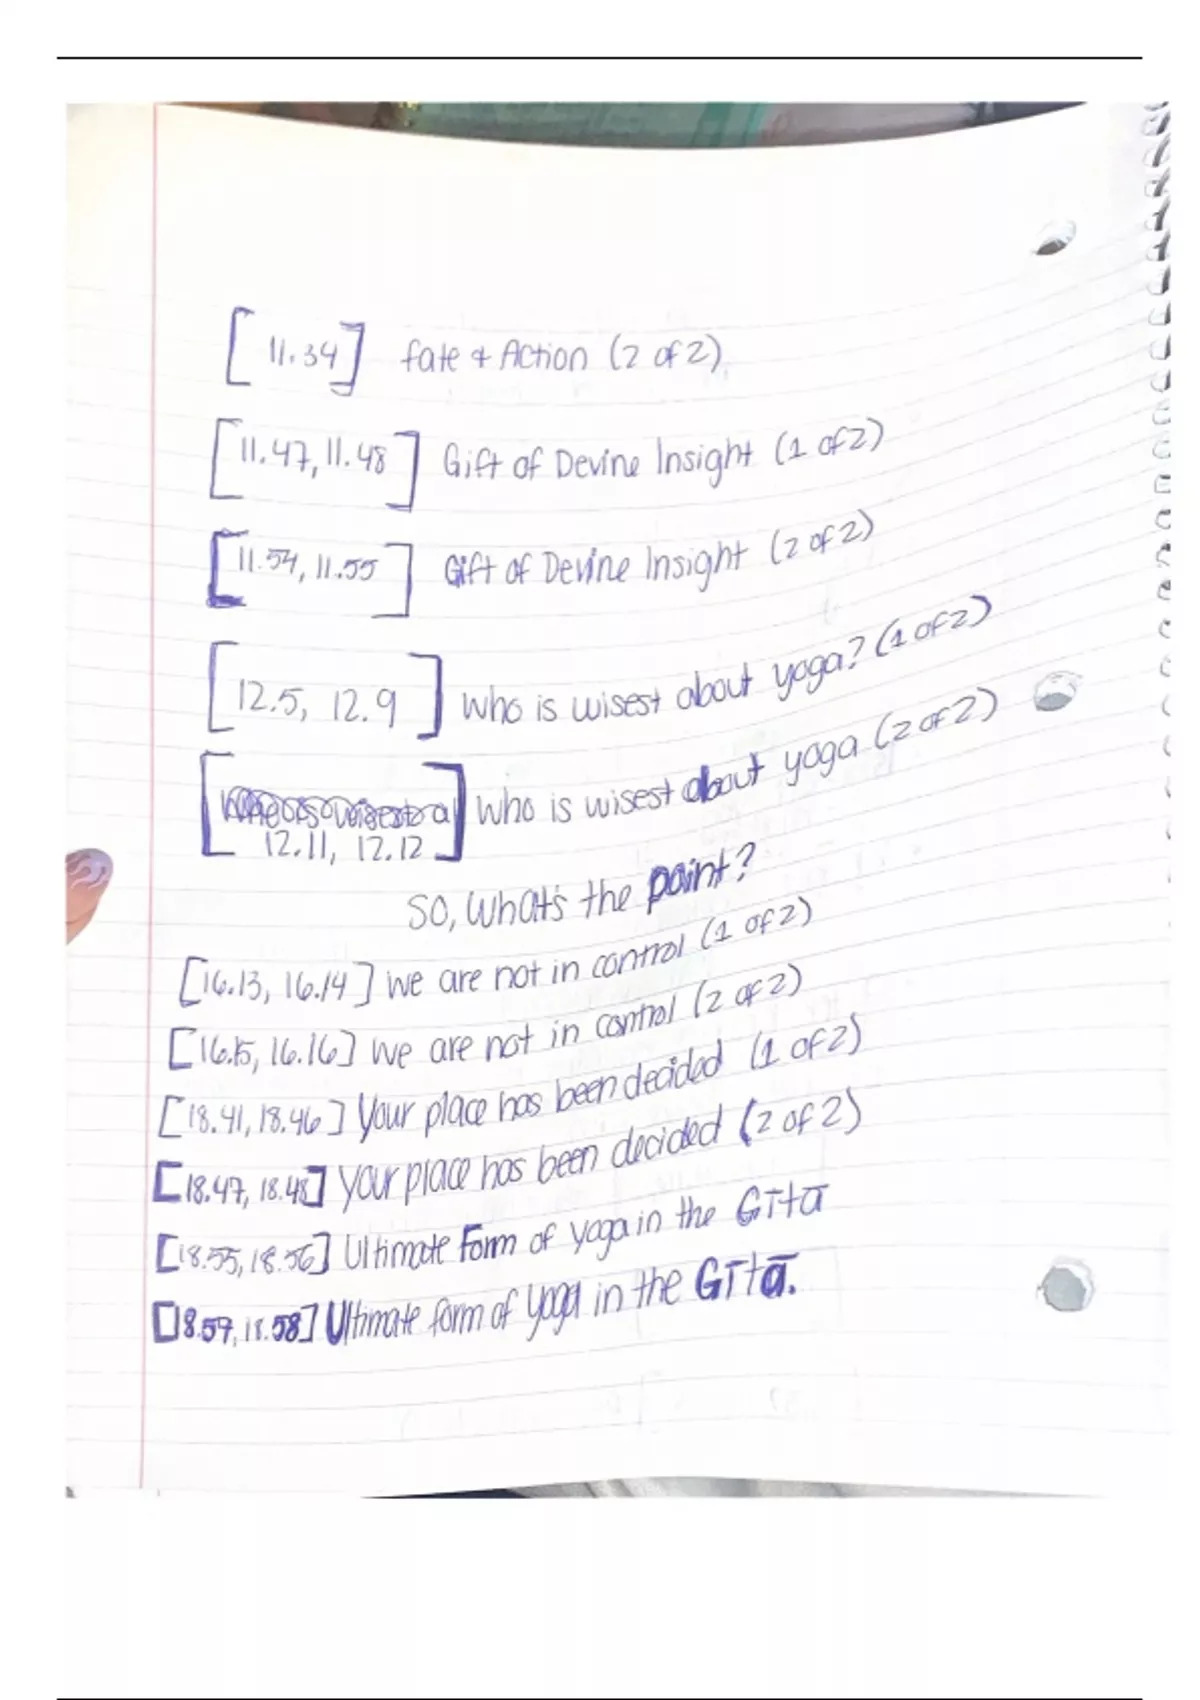 [11.34] fate & Action (2 of 2)
[11.47, 11.48] Gift of Devine Insight (1 of 2)
[11.54, 11.55] Gift of Devine Insight (2 of 2)
[12.5, 12.9] Who is wisest about yoga? (1 of 2)
[12.11, 12.12] Who is wisest about yoga (2 of 2)
SO, What's the point?
[16.13, 16.14] we are not in control (1 of 2)
[16.15, 16.16] we are not in control (2 of 2)
[18.41, 18.46] Your place has been decided (1 of 2)
[18.47, 18.48] Your place has been decided (2 of 2)
[18.55, 18.56] Ultimate Form of yoga in the Gītā
[18.57, 18.58] Ultimate form of yoga in the Gītā.